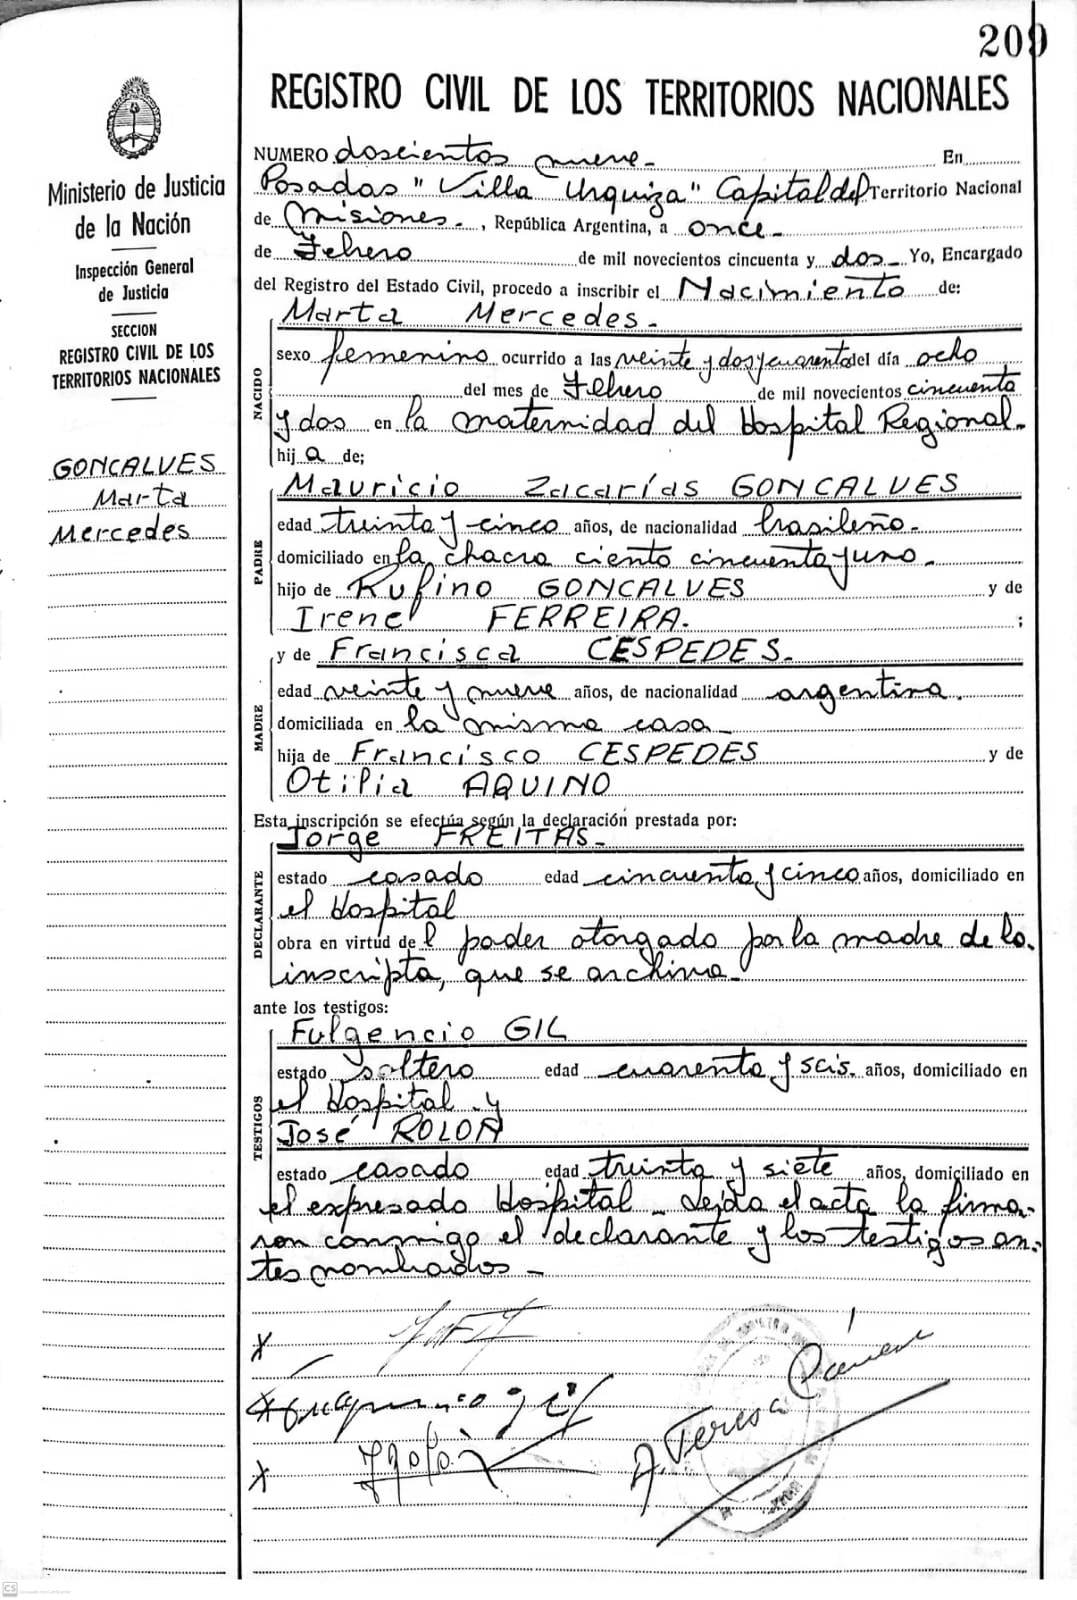 209
REGISTRO CIVIL DE LOS TERRITORIOS NACIONALES
Ministerio de Justicia
de la Nación
Inspección General
de Justicia
SECCION
REGISTRO CIVIL DE LOS
TERRITORIOS NACIONALES
GONCALVES
Marta
Mercedes
NUMERO doscientos nueve - En
Posadas "Villa Urquiza" Capital del Territorio Nacional
de Misiones. , República Argentina, a once -
de Febrero de mil novecientos cincuenta y dos - Yo, Encargado
del Registro del Estado Civil, procedo a inscribir el Nacimiento de:
NACIDO
Marta Mercedes -
sexo femenino ocurrido a las veinte y dos y cuarenta del día ocho
del mes de Febrero de mil novecientos cincuenta
y dos en la maternidad del Hospital Regional -
hij a de;
PADRE
Mauricio Zacarías GONCALVES
edad treinta y cinco años, de nacionalidad brasileño -
domiciliado en la chacra ciento cincuenta y uno -
hijo de Rufino GONCALVES y de
Irene FERREIRA. ;
MADRE
y de Francisca CESPEDES -
edad veinte y nueve años, de nacionalidad argentina.
domiciliada en la misma casa -
hija de Francisco CESPEDES y de
Otilia AQUINO
Esta inscripción se efectúa según la declaración prestada por:
DECLARANTE
Jorge FREITAS -
estado casado edad cincuenta y cinco años, domiciliado en
el Hospital
obra en virtud de l poder otorgado por la madre de la
inscripta, que se archiva -
ante los testigos:
TESTIGOS
Fulgencio GIL
estado soltero edad cuarenta y seis. años, domiciliado en
el Hospital y
José ROLON
estado casado edad treinta y siete años, domiciliado en
el expresado Hospital - Leída el acta la firma-
ron conmigo el declarante y los testigos an-
tes nombrados -
X
X
X
A. Teresa
CS